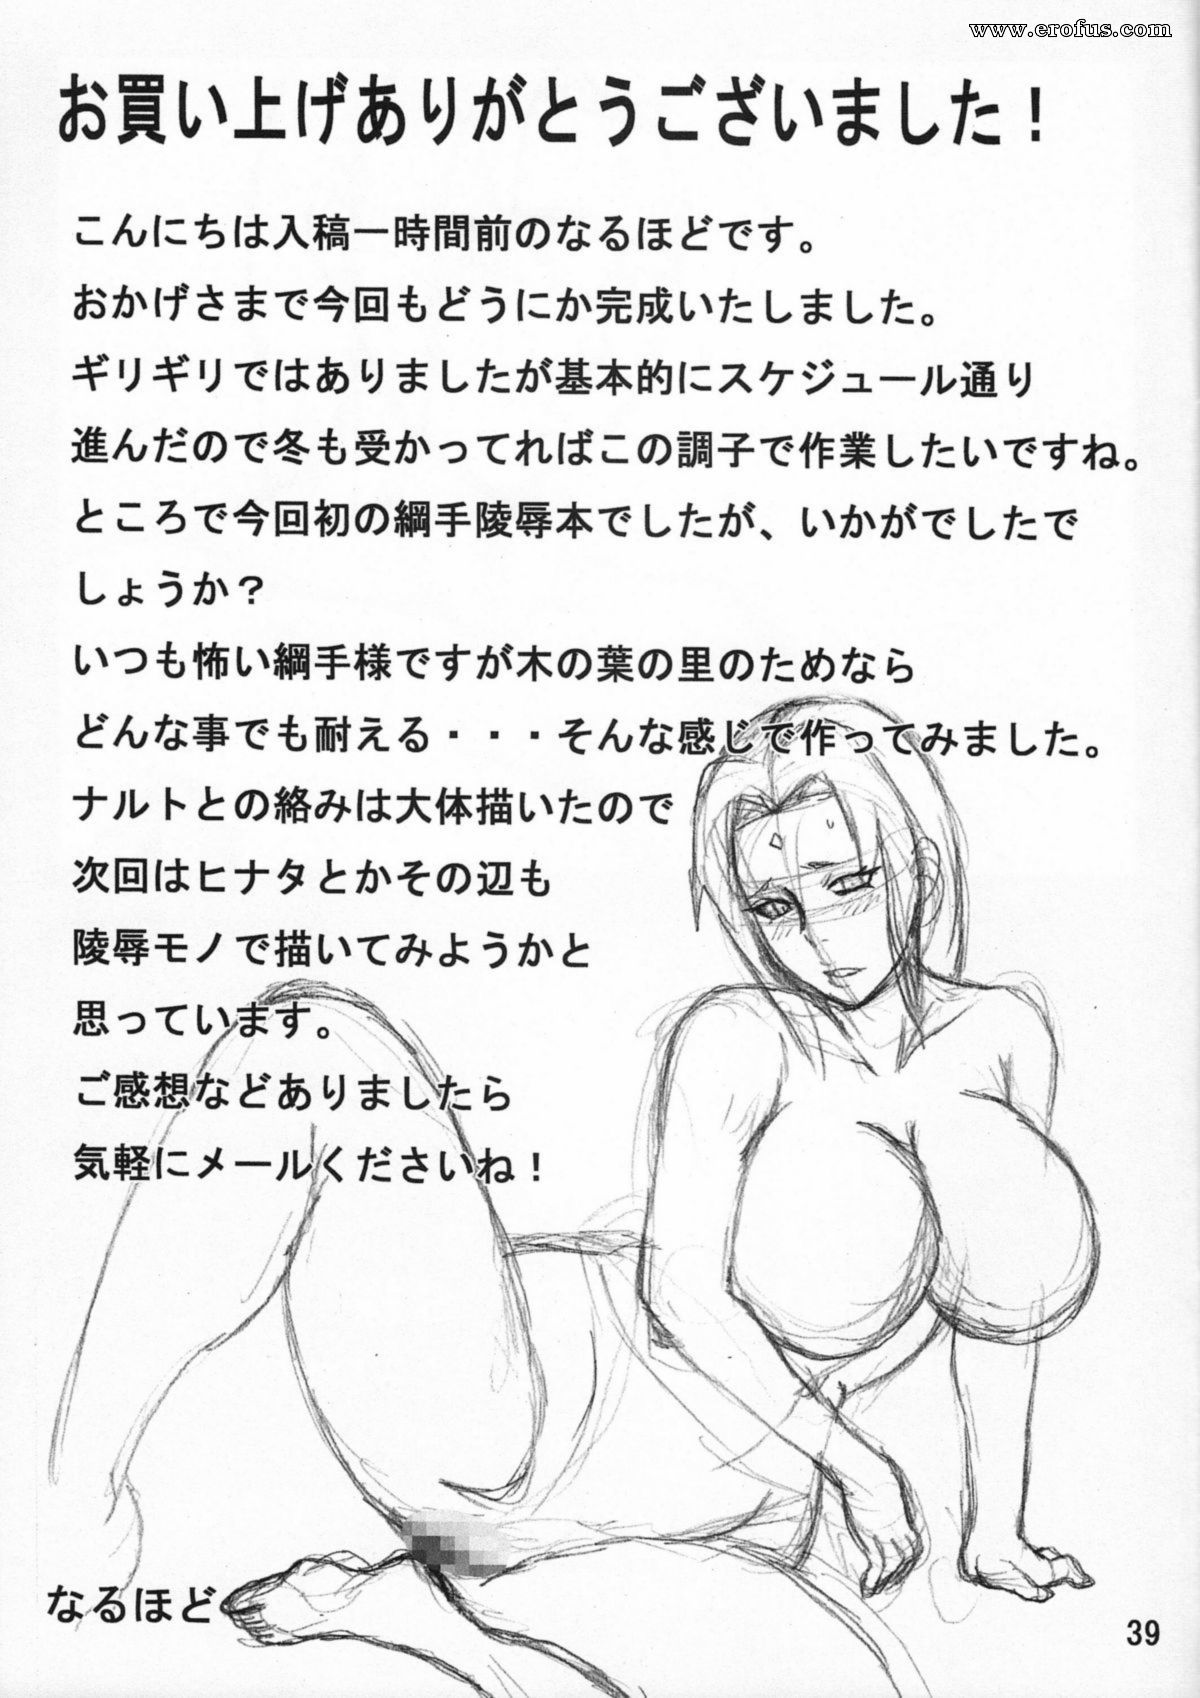 www.erofus.com
お買い上げありがとうございました！
こんにちは入稿一時間前のなるほどです。
おかげさまで今回もどうにか完成いたしました。
ギリギリではありましたが基本的にスケジュール通り
進んだので冬も受かってればこの調子で作業したいですね。
ところで今回初の綱手陵辱本でしたが、いかがでしたで
しょうか？
いつも怖い綱手様ですが木の葉の里のためなら
どんな事でも耐える・・・そんな感じで作ってみました。
ナルトとの絡みは大体描いたので
次回はヒナタとかその辺も
陵辱モノで描いてみようかと
思っています。
ご感想などありましたら
気軽にメールくださいね！
なるほど
39